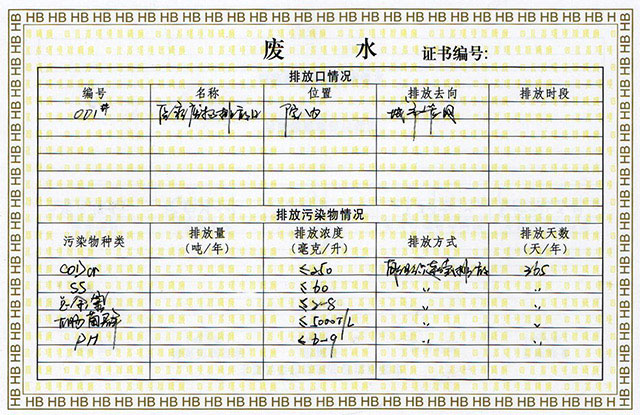 废 水 证书编号:
排放口情况
编号 名称 位置 排放去向 排放时段
001# 医疗废水排放口 院内 城市管网
排放污染物情况
污染物种类 排放量（吨/年） 排放浓度（毫克/升） 排放方式 排放天数（天/年）
CODcr ≤250 365
SS ≤60 〃 〃
总余氯 ≤2-8 〃 〃
大肠菌群 ≤5000个/L 〃 〃
PH ≤6-9 〃 〃